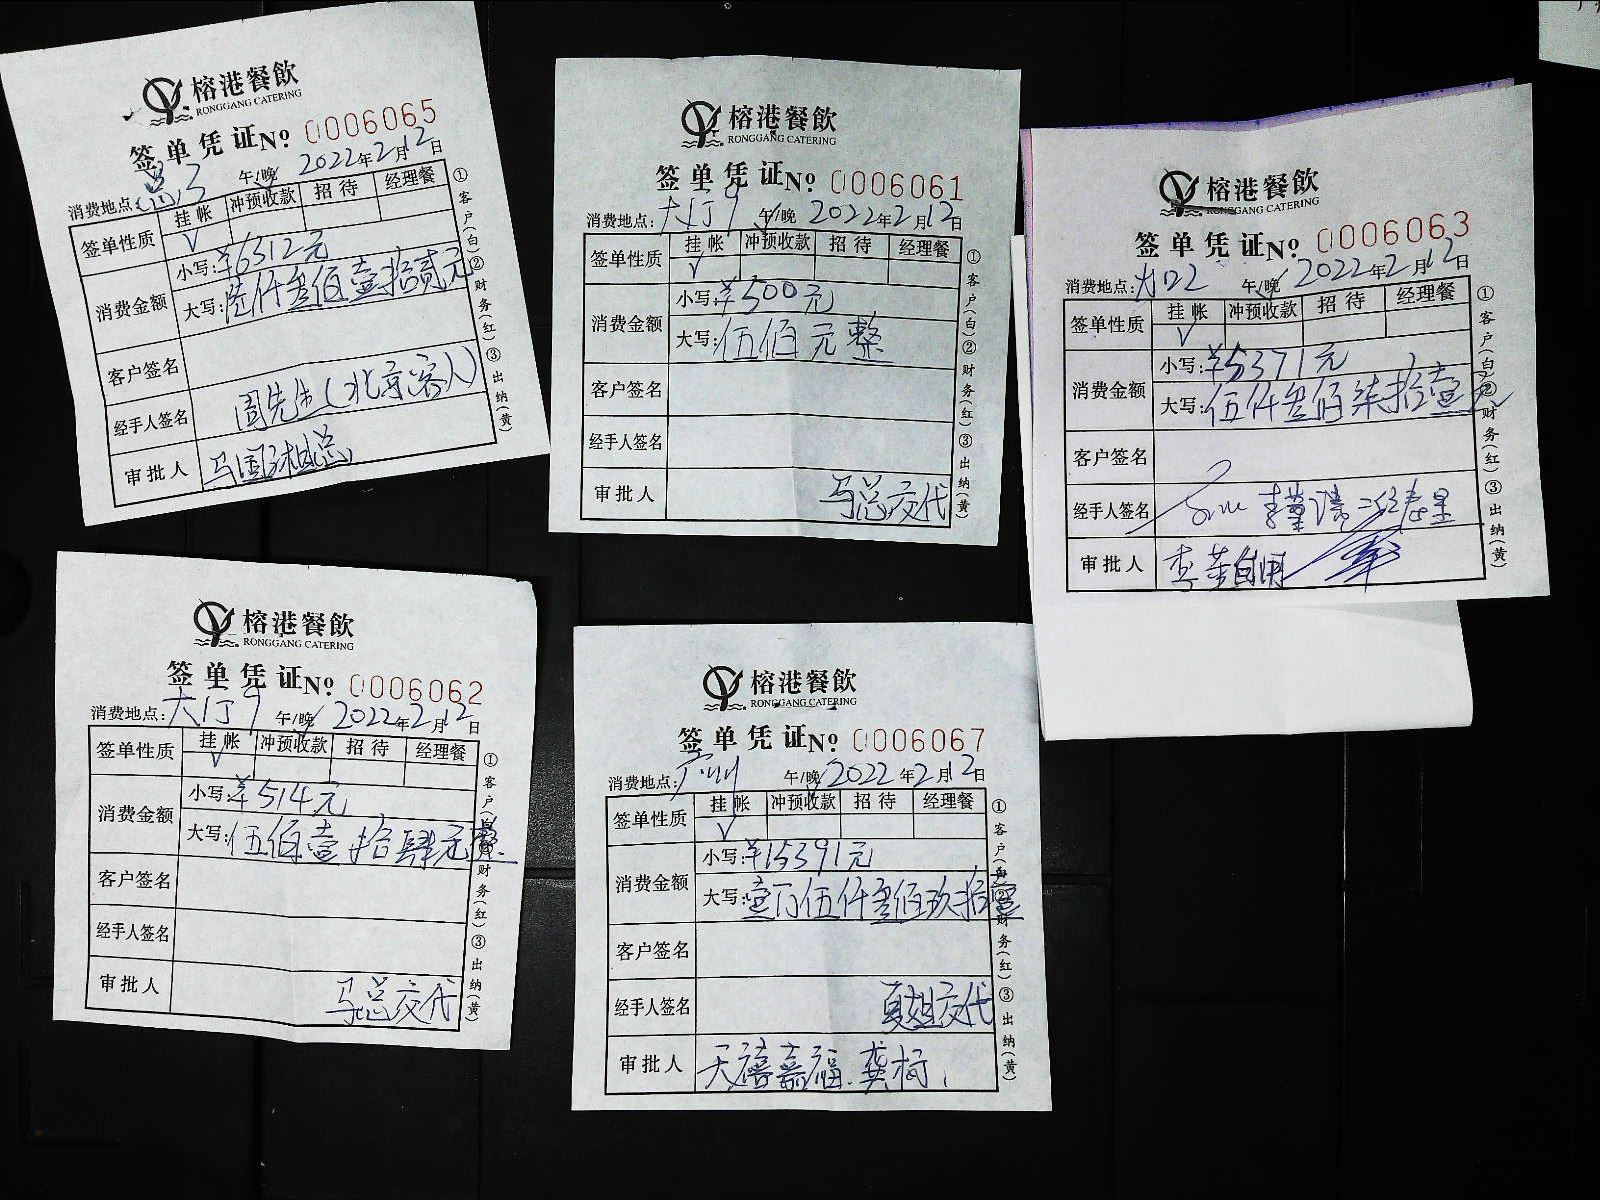 榕港餐飲
RONGGANG CATERING
签单凭证 Nº 0006065
消费地点: 午/晚 2022年2月12日
签单性质 挂帐 冲预收款 招待 经理餐
√
消费金额 小写:¥6312元
大写:陆仟叁佰壹拾贰元
客户签名
经手人签名 周先生(北京客人)
审批人 马国相总
①客户(白)②财务(红)③出纳(黄)
榕港餐飲
RONGGANG CATERING
签单凭证 Nº 0006061
消费地点:大厅9 午/晚 2022年2月12日
签单性质 挂帐 冲预收款 招待 经理餐
√
消费金额 小写:¥500元
大写:伍佰元整
客户签名
经手人签名
审批人 马总交代
①客户(白)②财务(红)③出纳(黄)
榕港餐飲
RONGGANG CATERING
签单凭证 Nº 0006063
消费地点: 午/晚 2022年2月12日
签单性质 挂帐 冲预收款 招待 经理餐
√
消费金额 小写:¥5371元
大写:伍仟叁佰柒拾壹元
客户签名
经手人签名
审批人 李董自用
①客户(白)②财务(红)③出纳(黄)
榕港餐飲
RONGGANG CATERING
签单凭证 Nº 0006062
消费地点:大厅9 午/晚 2022年2月12日
签单性质 挂帐 冲预收款 招待 经理餐
√
消费金额 小写:¥514元
大写:伍佰壹拾肆元整
客户签名
经手人签名
审批人 马总交代
①客户(白)②财务(红)③出纳(黄)
榕港餐飲
RONGGANG CATERING
签单凭证 Nº 0006067
消费地点:广州 午/晚 2022年2月12日
签单性质 挂帐 冲预收款 招待 经理餐
√
消费金额 小写:¥15391元
大写:壹万伍仟叁佰玖拾壹
客户签名
经手人签名 夏姐交代
审批人 天禧嘉福.龚梅
①客户(白)②财务(红)③出纳(黄)